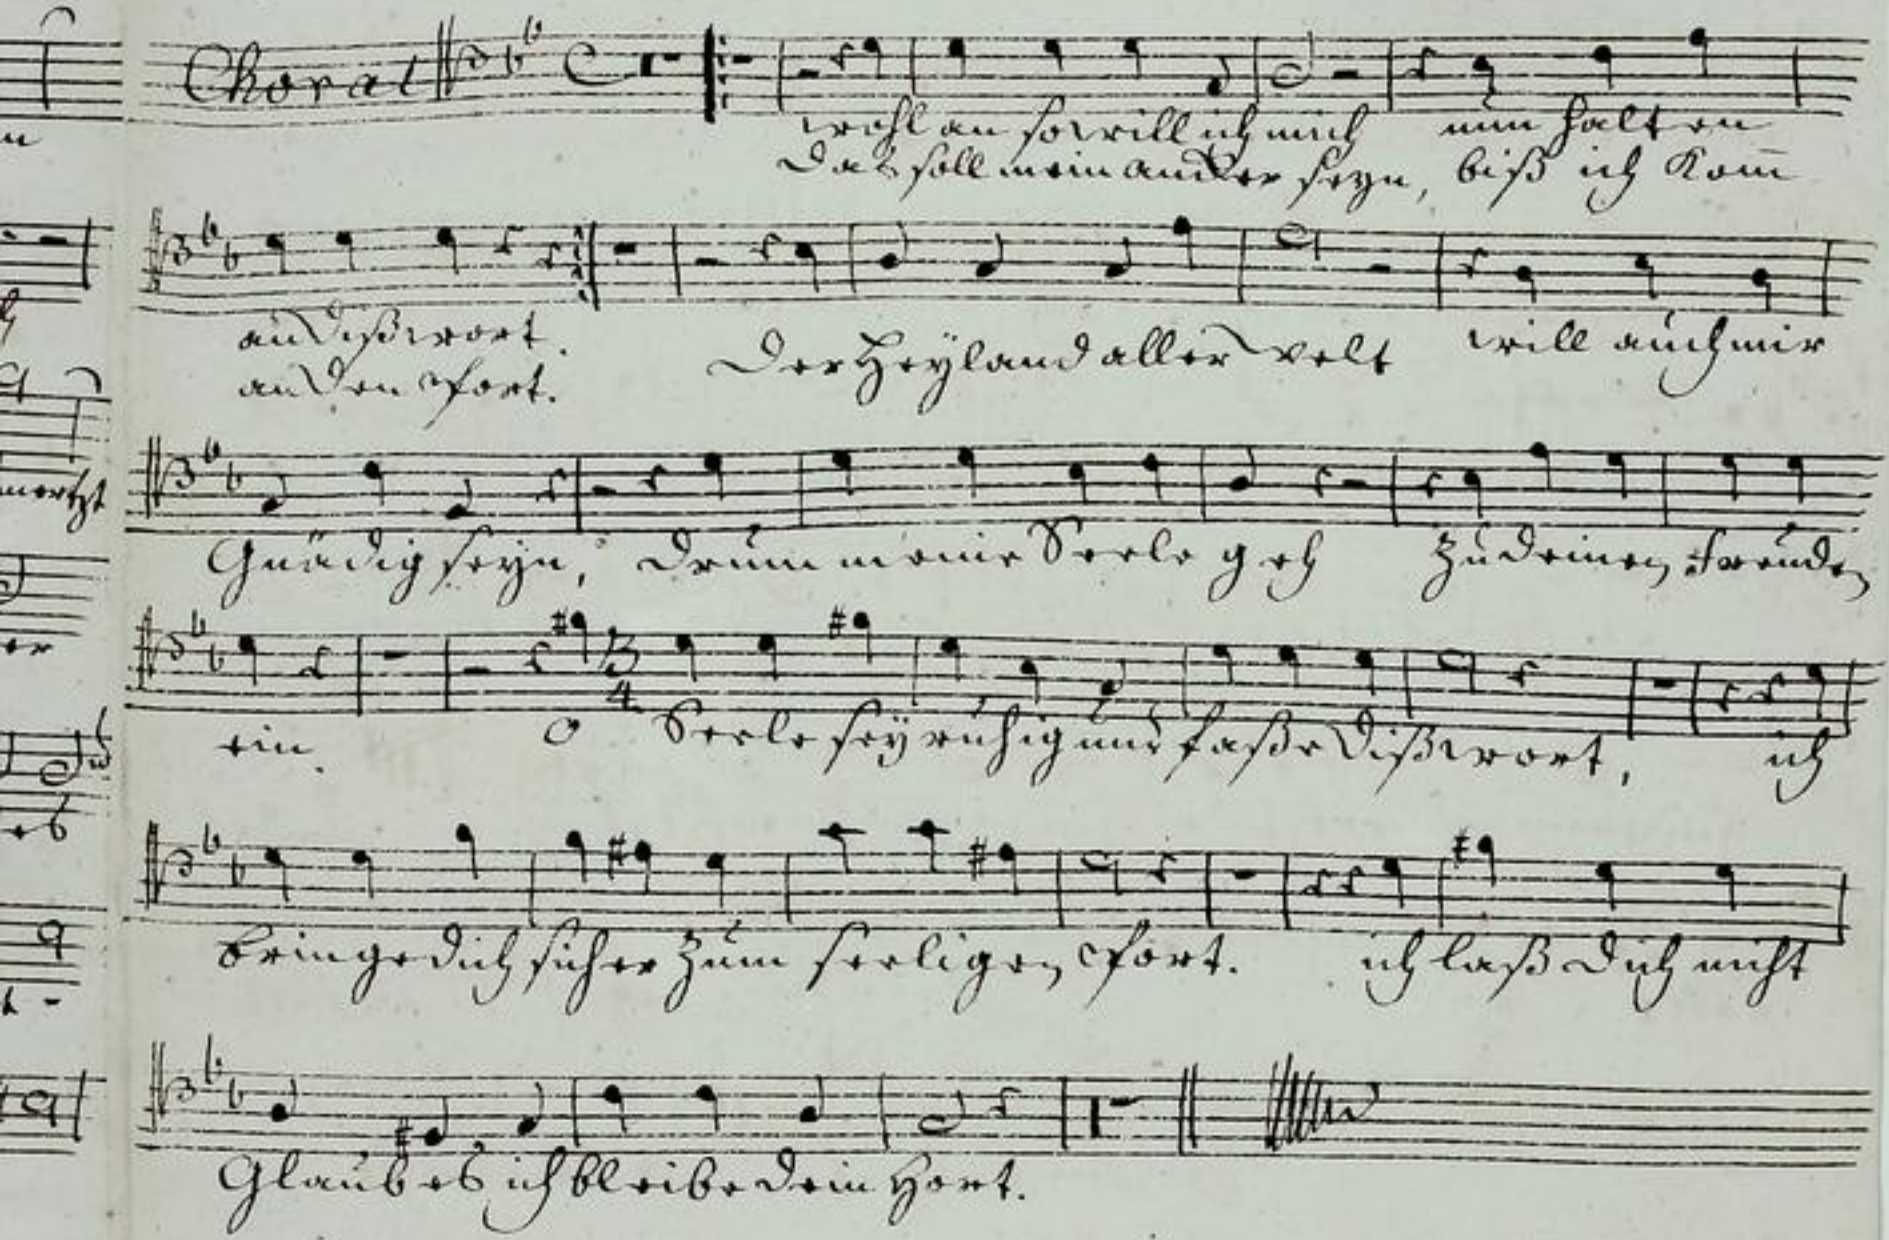 Choral
wohl an so will ich mich nun halten
Das soll mein ancker seyn, biß ich Kom̄
an diß wort.
an den Port. Der Heyland aller welt will auch mir
Gnädig seyn, drum meine Seele geh zu deinen Freuden
3
4
ein. O Seele sey ruhig und faße diß wort, ich
bringe dich sicher zum seeligen Port. ich laß dich nicht
Glaub es, ich bleibe dein Hort.